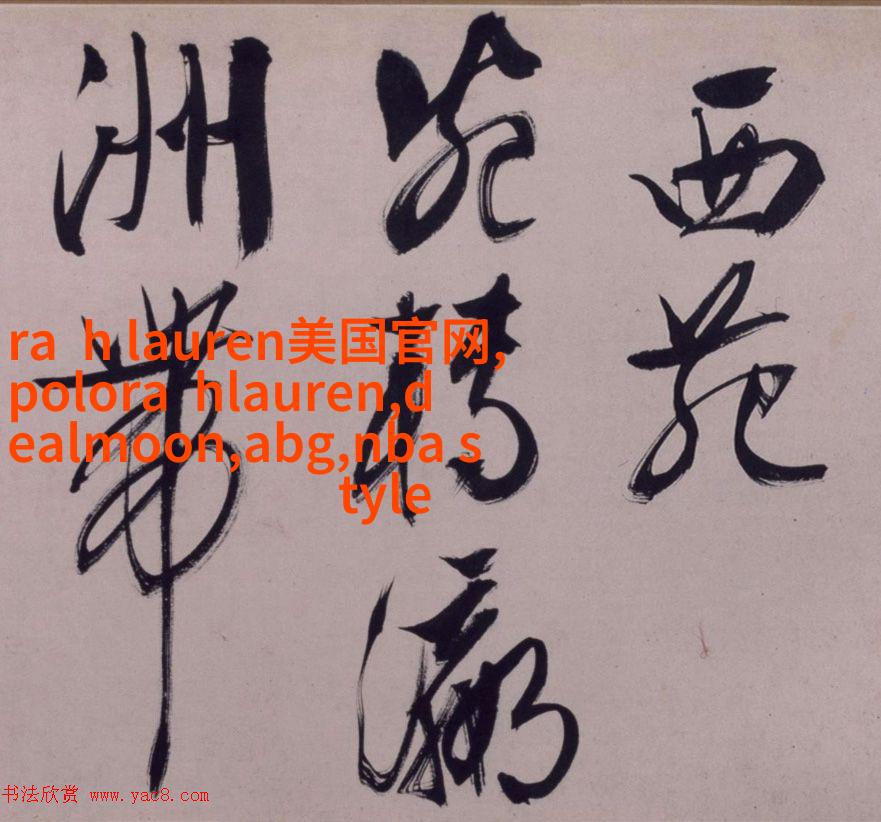 西苑
宛轉瀛
洲帶
ra  h lauren美国官网,
polora  hlauren,d
ealmoon,abg,nba s
tyle
书法欣赏 www.yac8.com